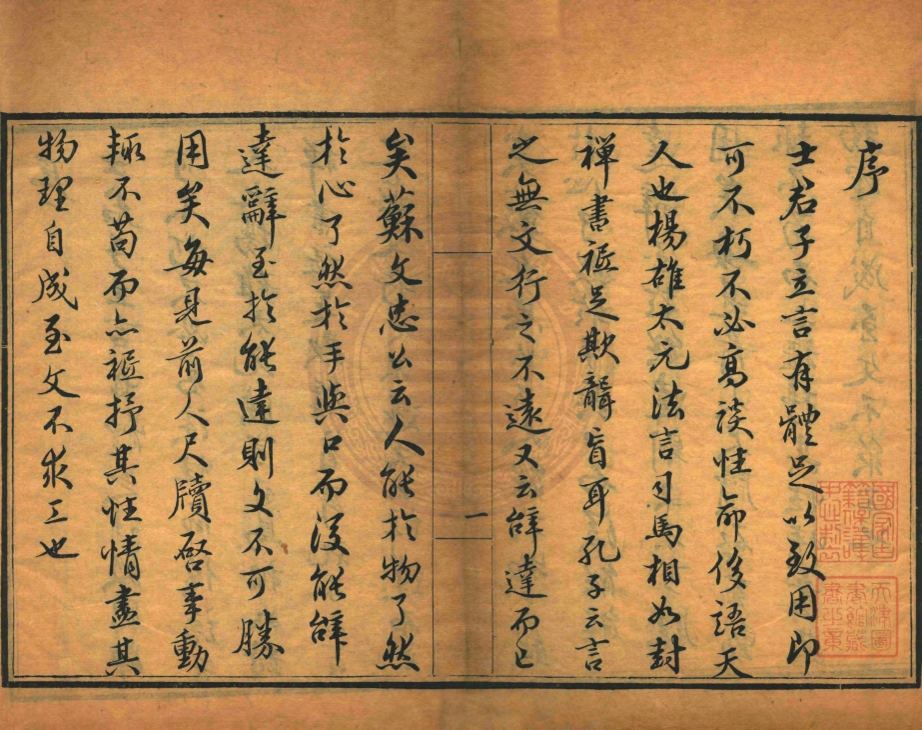 序
士君子立言有體足以致用即
可不朽不必高談性命侈語天
人也楊雄太元法言司馬相如封
禪書秪足欺聾盲耳孔子云言
之無文行之不遠又云辭達而已
一
矣蘇文忠公云人能於物了然
於心了然於手與口而後能辭
達辭至於能達則文不可勝
用矣每見前人尺牘啓事動
輒不苟而亦秪抒其性情盡其
物理自成至文不求工也
國家古
籍保護
天津圖
書館藏